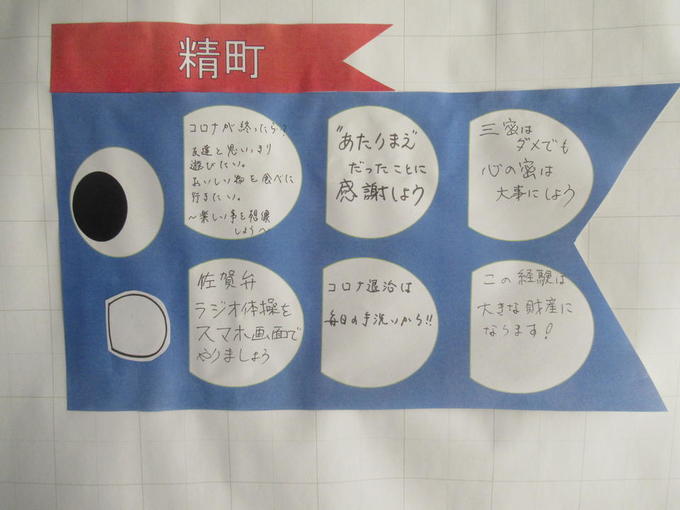 精町
コロナが終ったら?
友達と思いっきり
遊びたい。
おいしい物を食べに
行きたい。
～楽しい事を想像
しよう～
"あたりまえ"
だったことに
感謝しよう
三密は
ダメでも
心の密は
大事にしよう
佐賀弁
ラジオ体操を
スマホ画面で
やりましょう
コロナ退治は
毎日の手洗いから!!
この経験は
大きな財産に
なります!